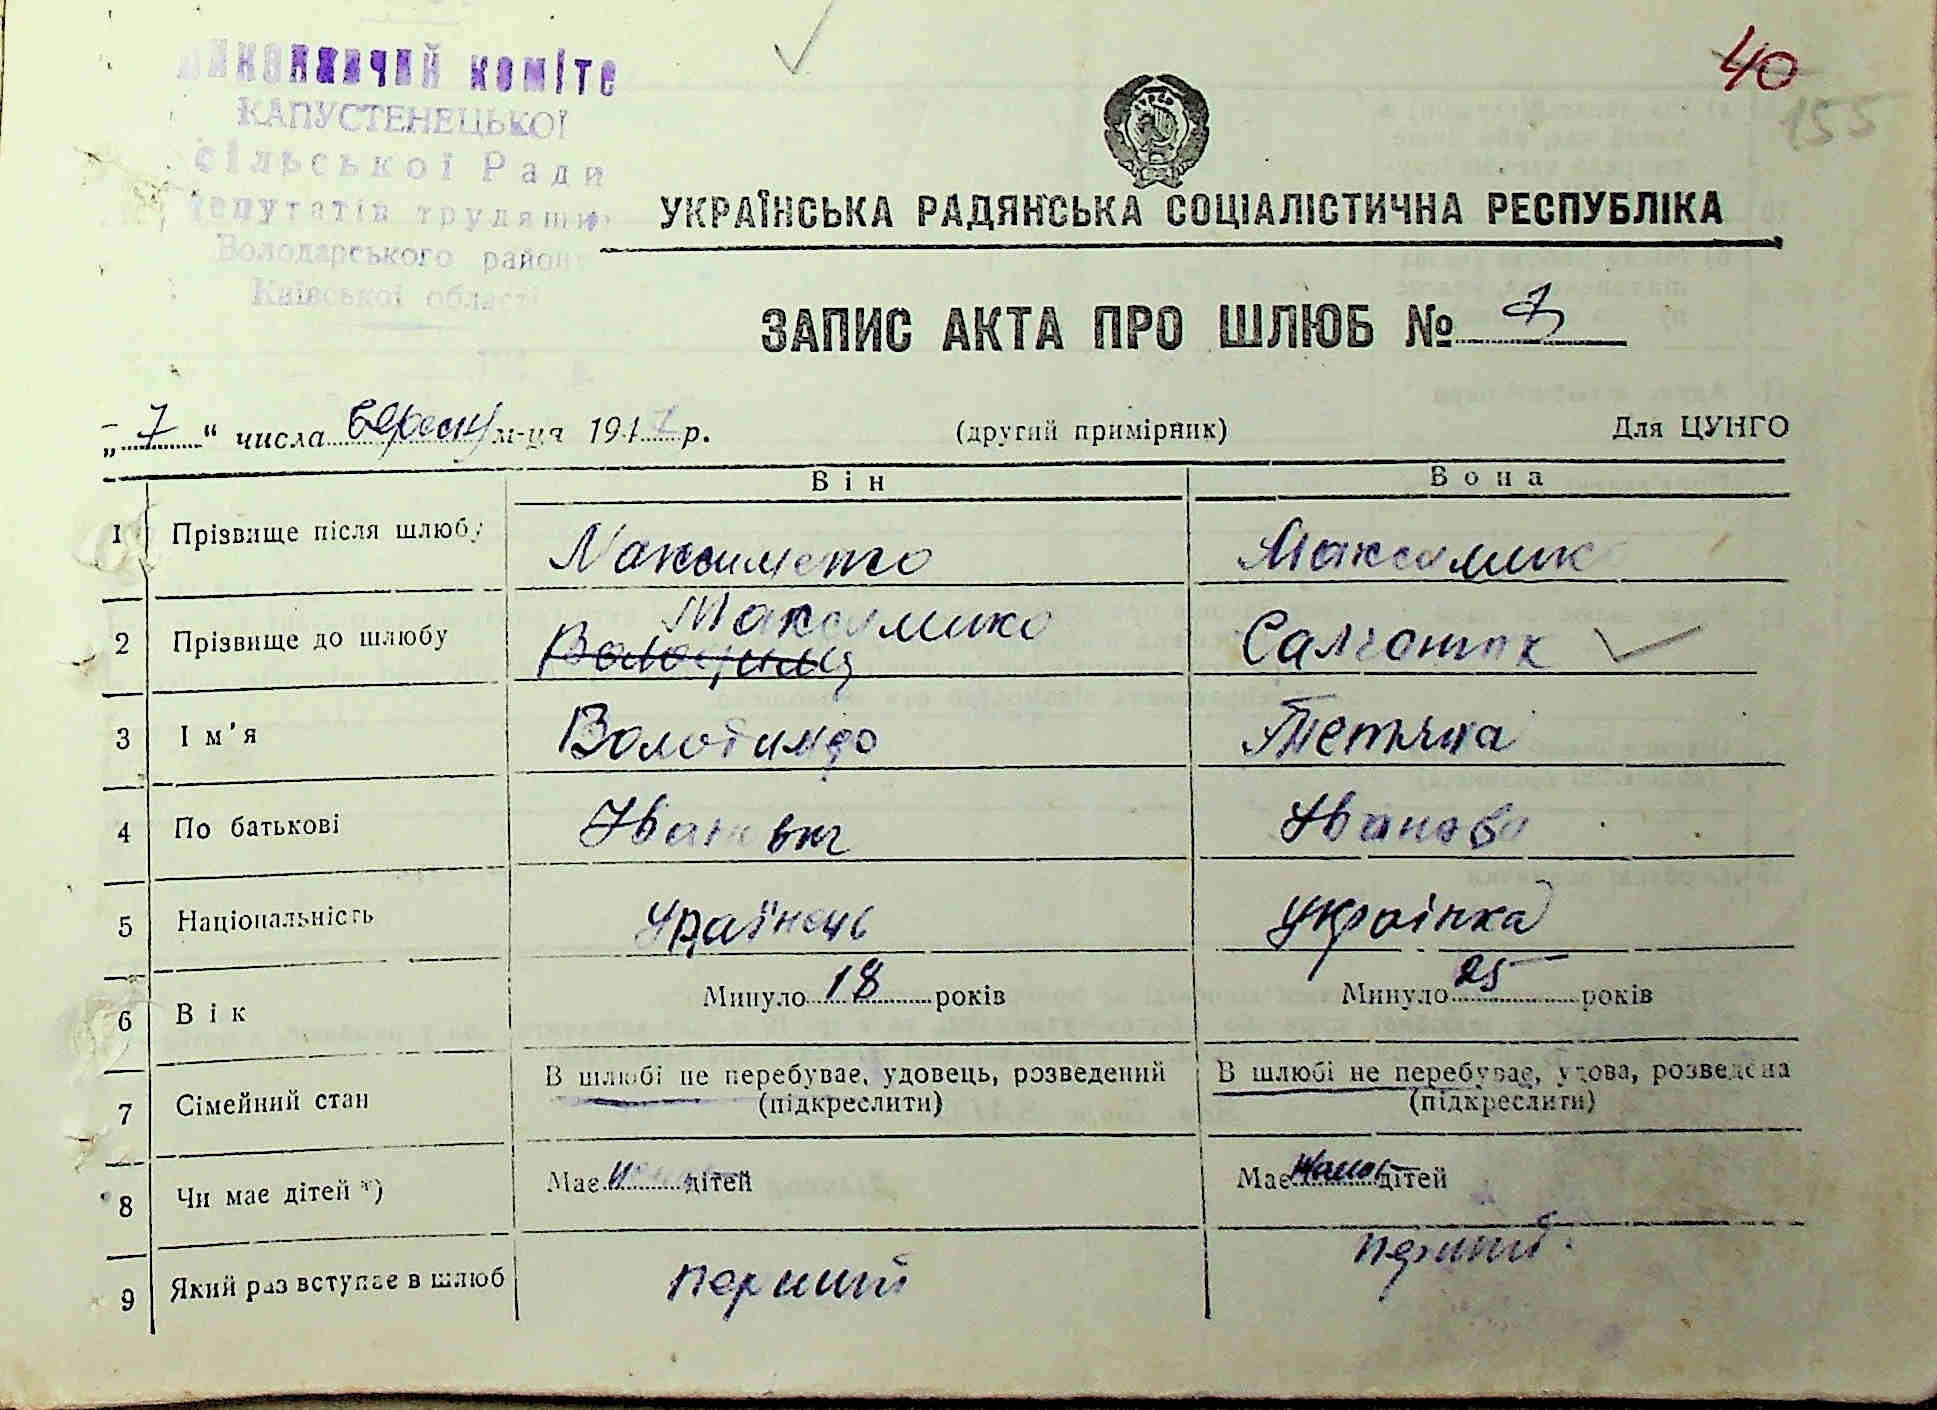 комітe
КАПУСТЕНЕЦЬКОЇ
сільської Ради
депутатів трудящи
Володарського район
Київської області
40
155
УКРАЇНСЬКА РАДЯНСЬКА СОЦІАЛІСТИЧНА РЕСПУБЛІКА
ЗАПИС АКТА ПРО ШЛЮБ № 7
„7“ числа м-ця 194 р. (другий примірник) Для ЦУНГО
Він Вона
1 Прізвище після шлюбу Максименко
2 Прізвище до шлюбу
3 Ім'я Тетяна
4 По батькові
5 Національність Українець Українка
6 Вік Минуло 18 років Минуло 25 років
7 Сімейний стан В шлюбі не перебуває, удовець, розведений В шлюбі не перебуває, удова, розведена
(підкреслити) (підкреслити)
8 Чи має дітей *) Має дітей Має дітей
9 Який раз вступає в шлюб перший перший